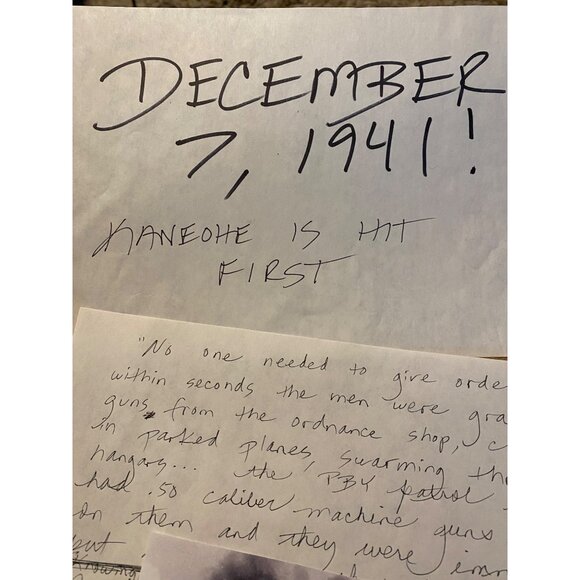 DECEMBER
7, 1941!
KANEOHE IS HIT
FIRST
"No one needed to give orde
within seconds the men were gra
guns from the ordnance shop, c
in parked planes, swarming th
hangars... the PBY patrol
had .50 caliber machine guns
on them and they were imm
but
Knowing